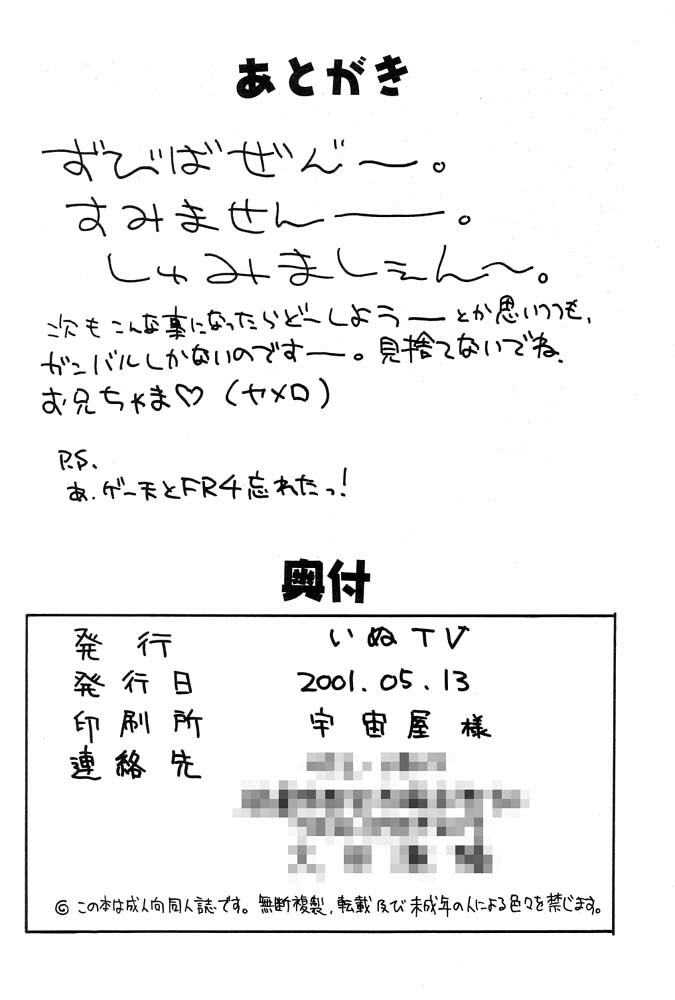 あとがき
ずびばぜんﾞー。
すみませんー。
しゅみましぇん〜。
次もこんな事になったらどーしようーとか思いつつも、
ガンバルしかないのですー。見捨てないでね、
お兄ちゃま♡（ヤメロ）
P.S.
あ、ゲー天とFR4忘れたっ！
奥付
発行 いぬTV
発行日 2001.05.13
印刷所 宇宙屋様
連絡先
© この本は成人向同人誌です。無断複製、転載及び未成年の人による色々を禁じます。